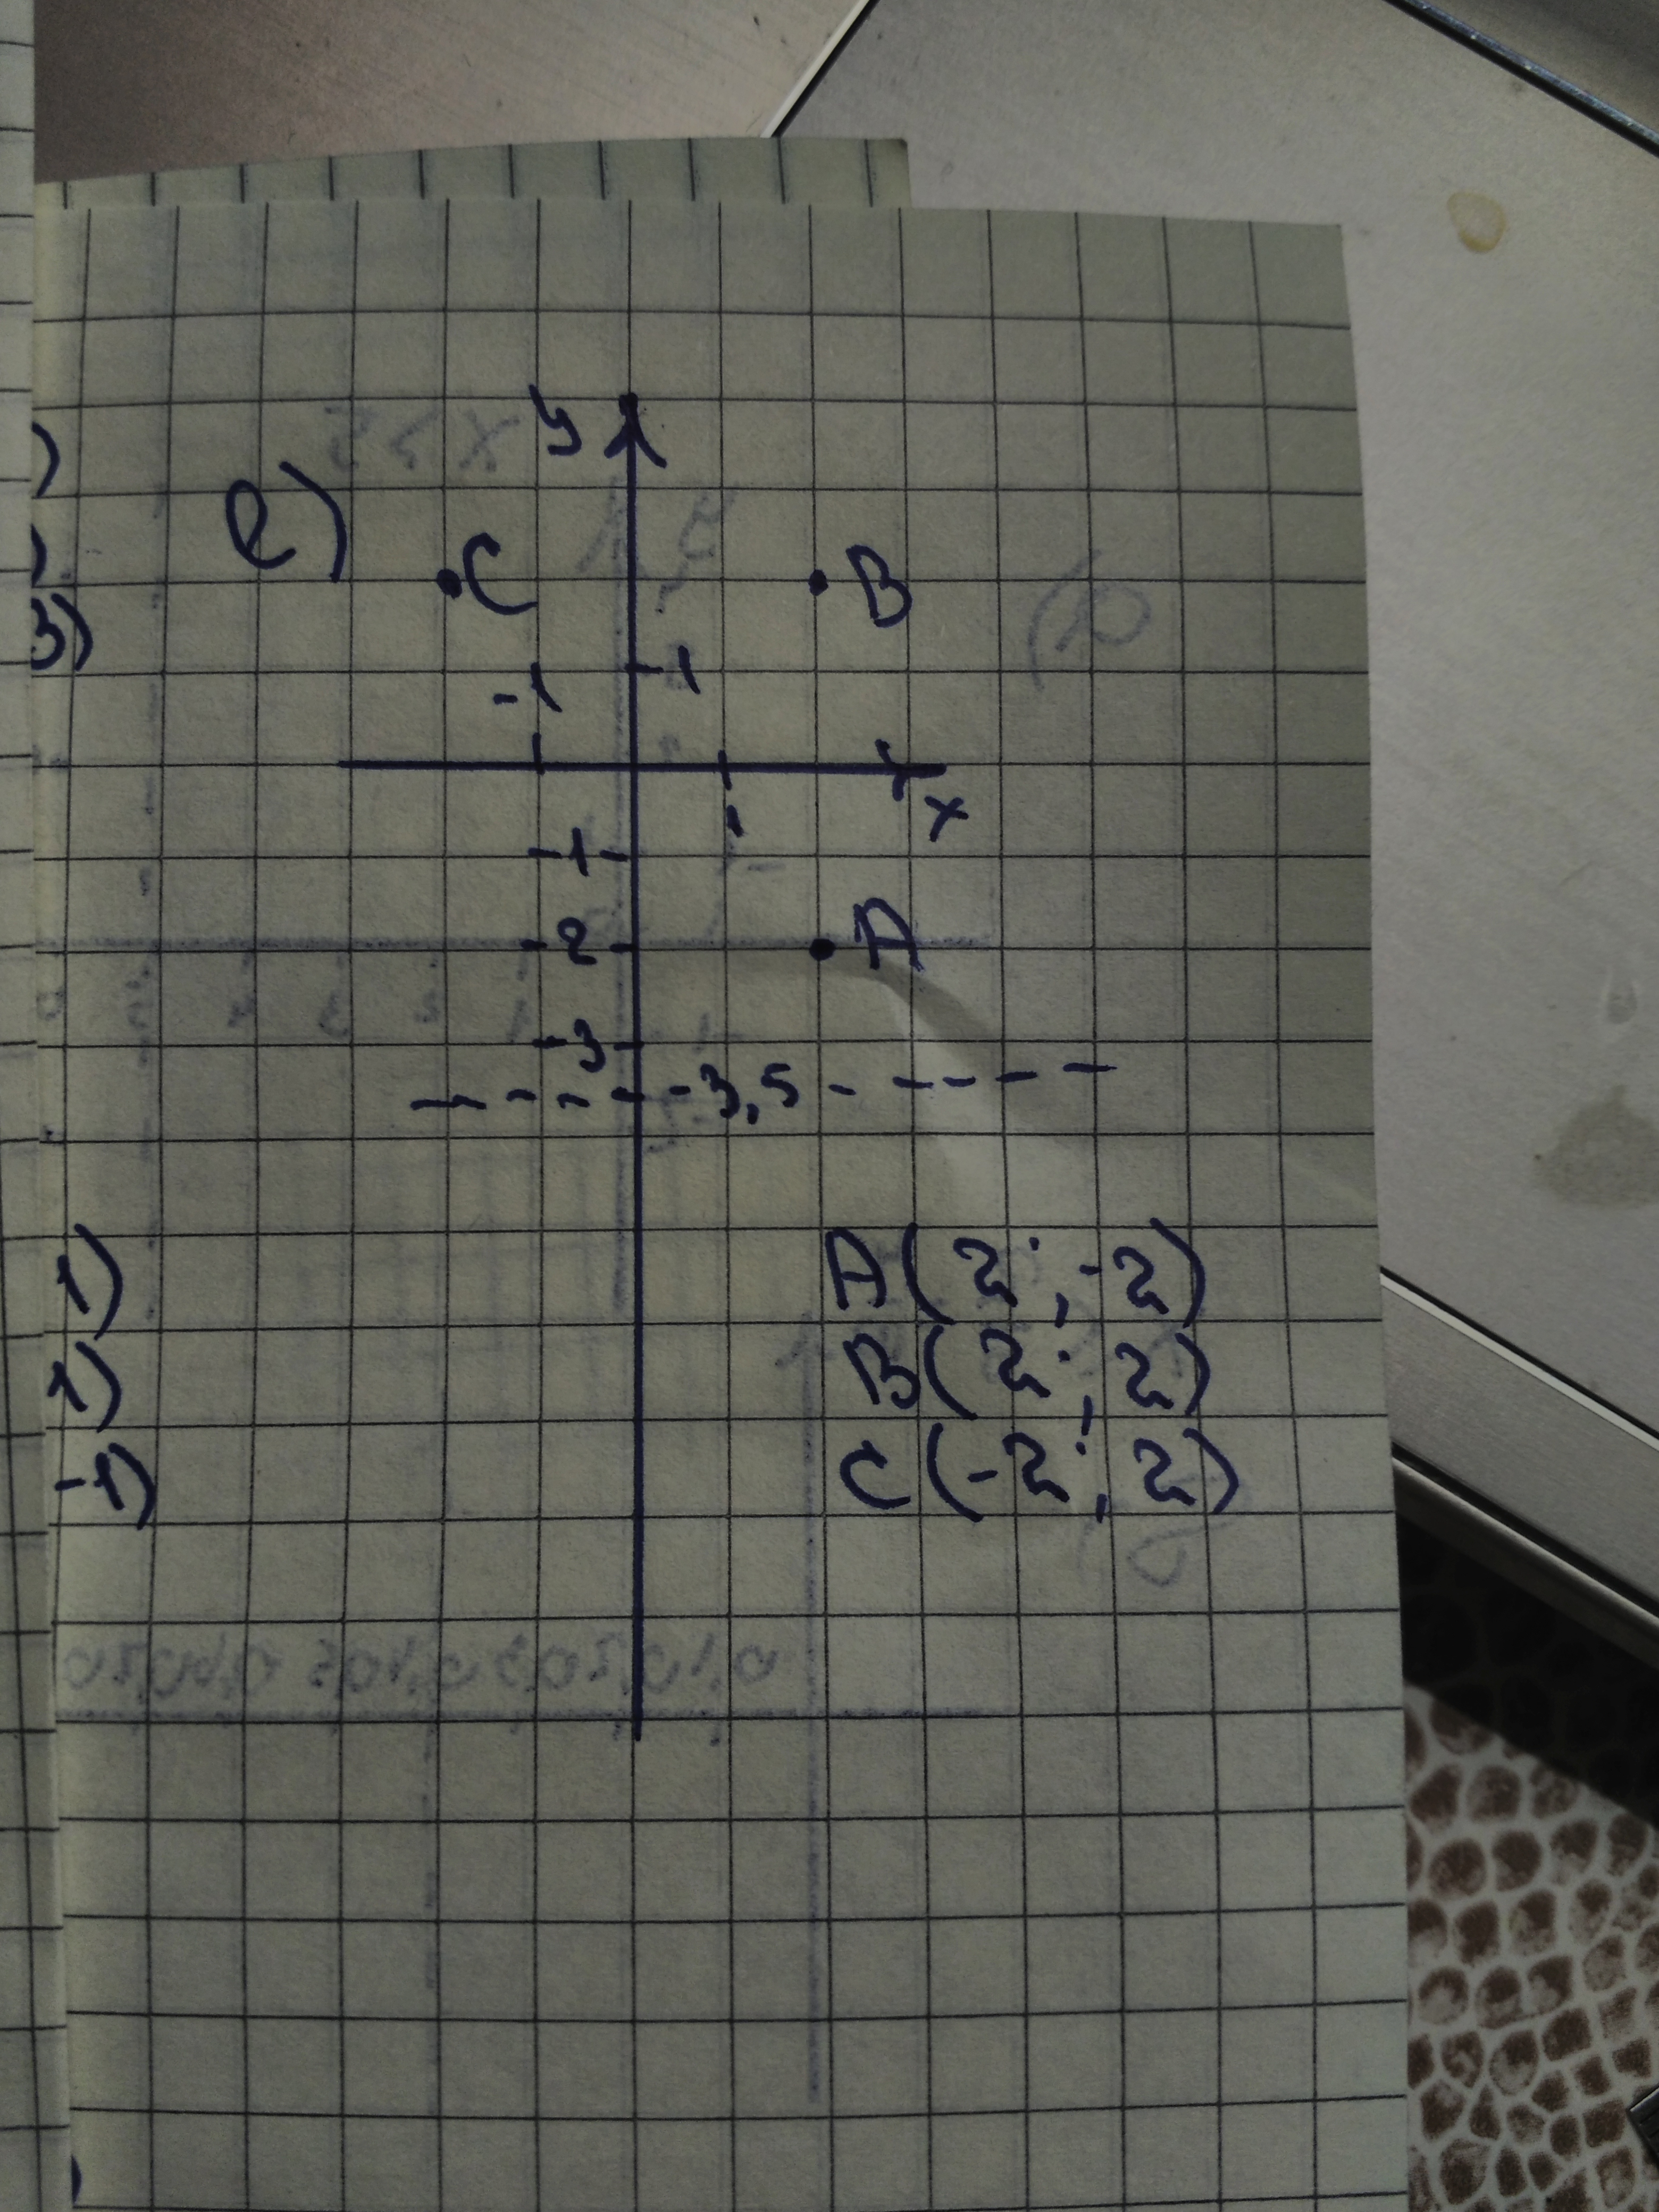 y
e)
C B
-1 1
x
1
-1
-2 A
-3
-3,5
A(2; -2)
B(2; 2)
C(-2; 2)
)
)
3)
1)
1)
-1)